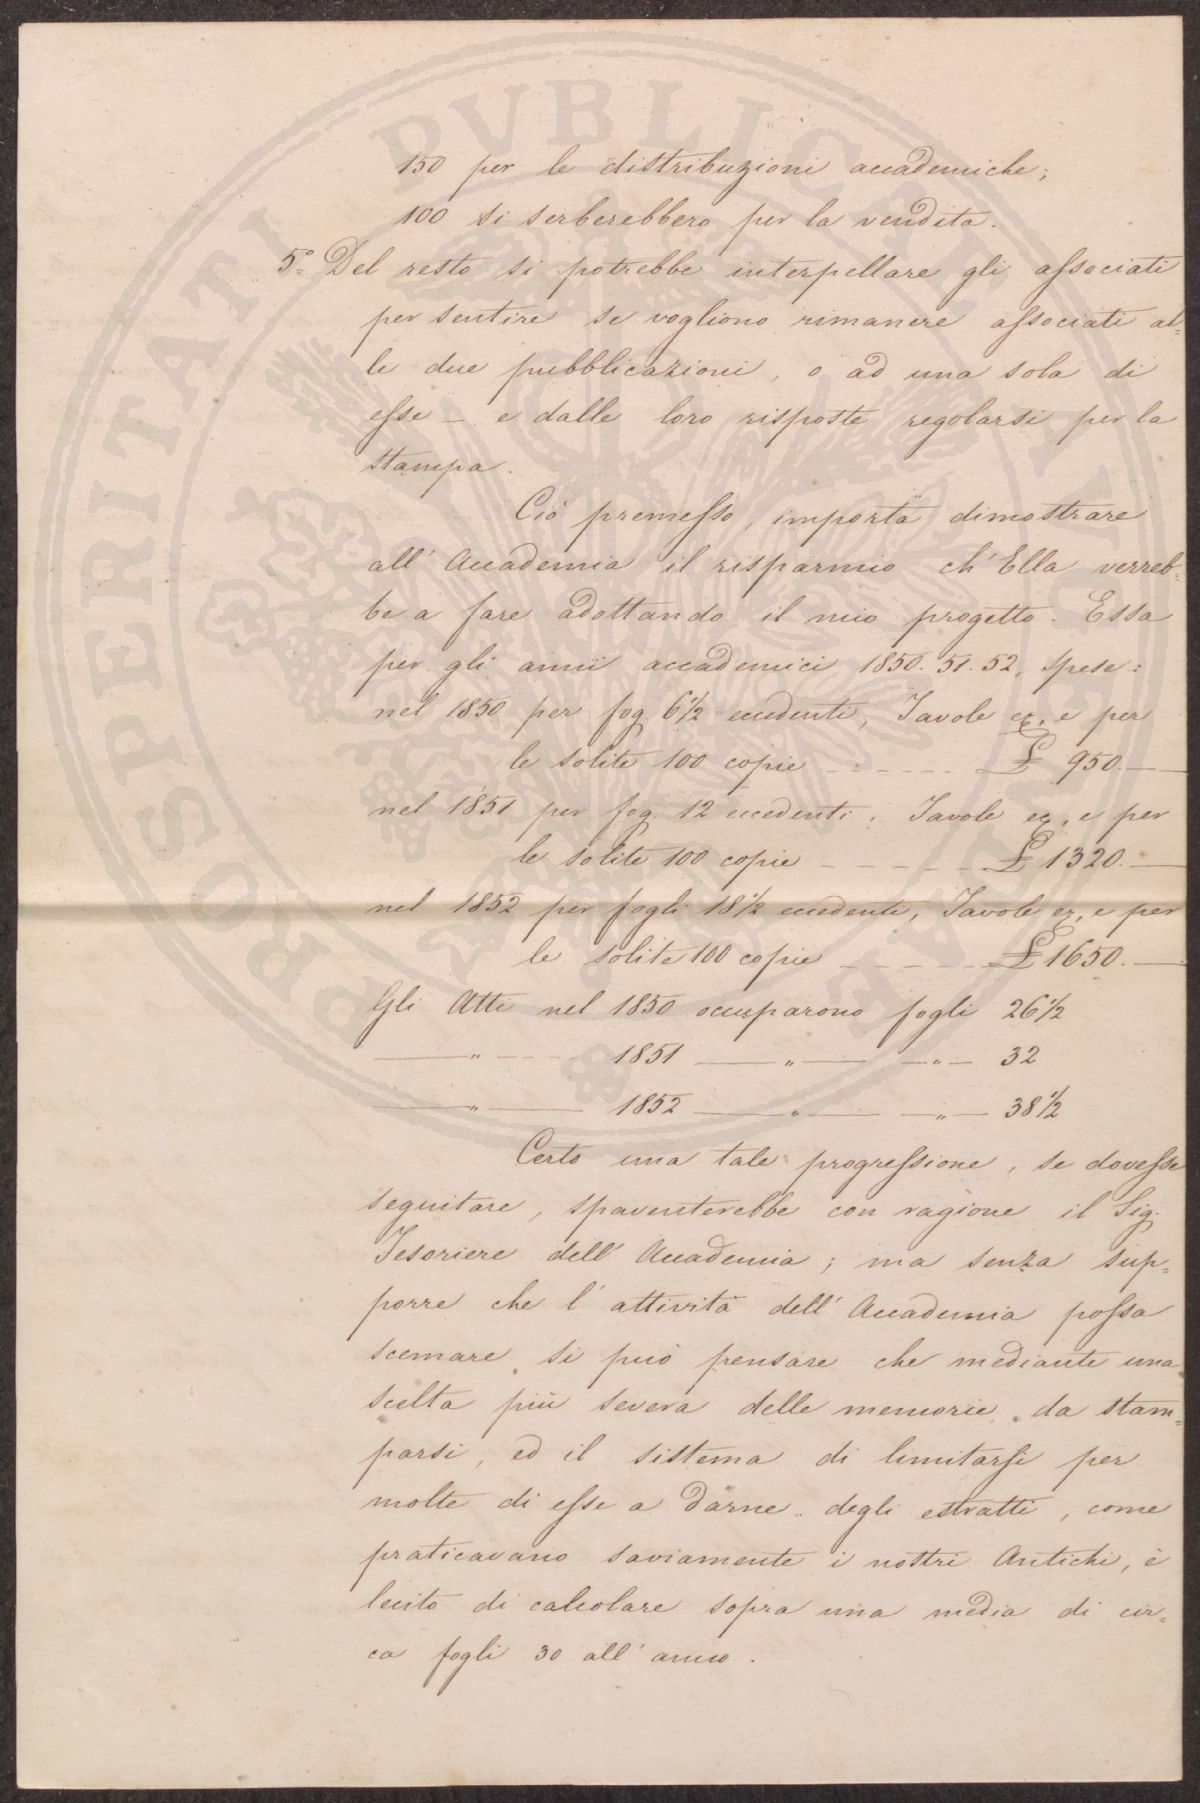 150 per le distribuzioni accademiche;
100 si serberebbero per la vendita.
5.º Del resto si potrebbe interpellare gli associati
per sentire se vogliono rimanere associati al=
le due pubblicazioni, o ad una sola di
esse – e dalle loro risposte regolarsi per la
stampa.
Ciò premesso, importa dimostrare
all' Accademia il risparmio ch' Ella verreb=
be a fare adottando il mio progetto. Essa
per gli anni accademici 1850. 51. 52, spese:
nel 1850 per fog. 6 1/2 eccedenti, Tavole ec, e per
le solite 100 copie - - - - - - £ 950. —
nel 1851 per fog. 12 eccedenti, Tavole ec, e per
le solite 100 copie - - - - - £ 1320. —
nel 1852 per fogli 18 1/2 eccedenti, Tavole ec, e per
le solite 100 copie - - - - - £ 1650. —
Gli Atti nel 1850 occuparono fogli 26 1/2
— " — 1851 — " — — " — 32
— " — 1852 — " — — " — 38 1/2
Certo una tale progressione, se dovesse
seguitare, spaventerebbe con ragione il Sig.
Tesoriere dell' Accademia; ma senza sup=
porre che l' attività dell' Accademia possa
scemare, si può pensare che mediante una
scelta più severa delle memorie da stam=
parsi, ed il sistema di limitarsi per
molte di esse a darne degli estratti, come
praticavano saviamente i nostri Antichi, è
lecito di calcolare sopra una media di cir=
ca fogli 30 all' anno.
PROSPERITATI PVBLICAE AVGENDAE